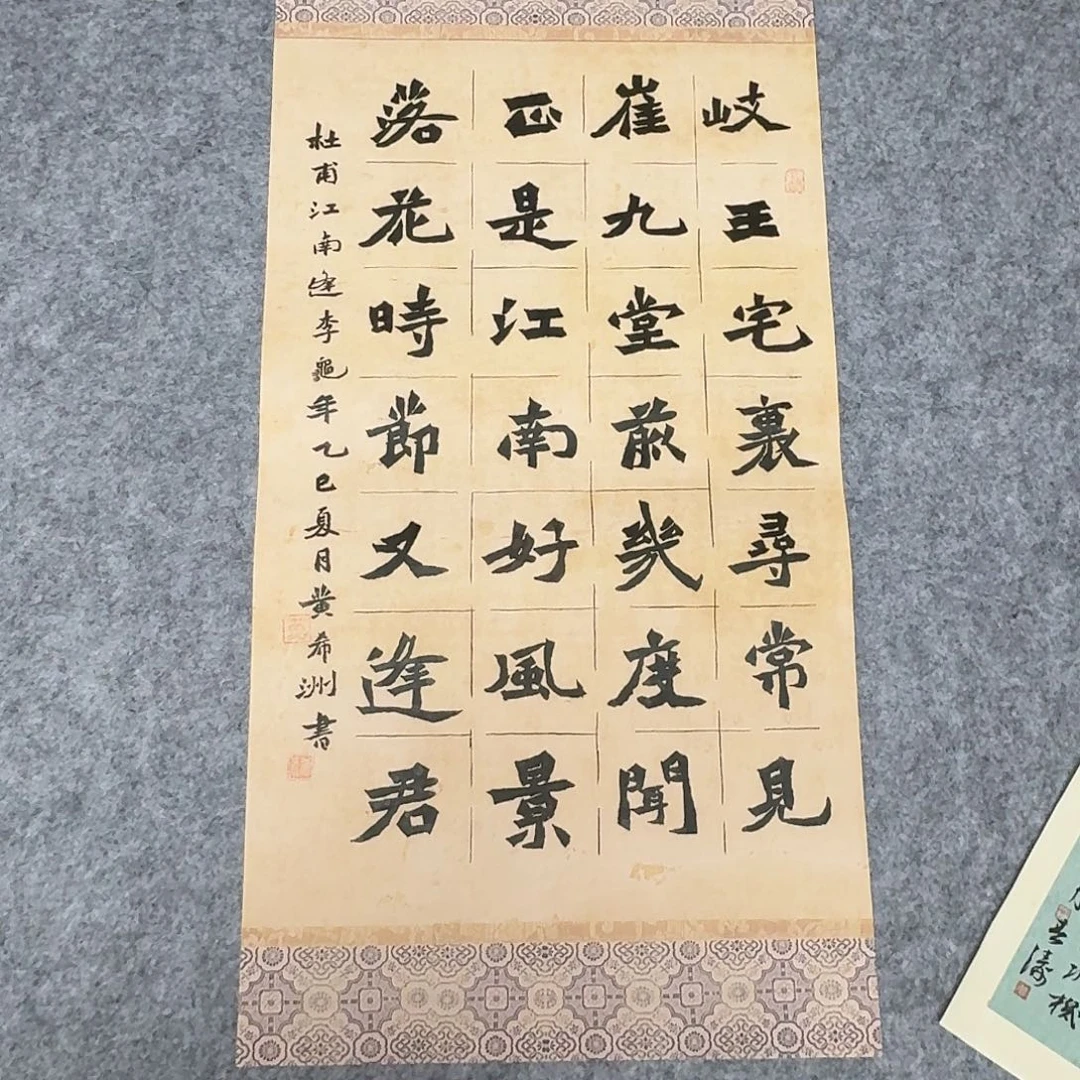 岐王宅裏尋常見
崔九堂前幾度聞
正是江南好風景
落花時節又逢君
杜甫江南逢李龜年乙巳夏月黄希洲書